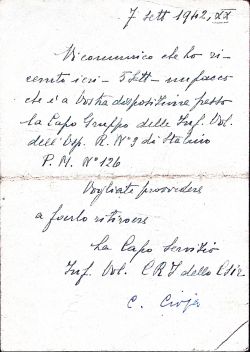 7 Sett 1942, XX
Vi comunico che ho ri-
cevuto ieri - 6 Sett - un pacco
che è a Vostra disposizione presso
la Capo Gruppo delle Inf. Vol.
dell'Osp. R. N° 3 di Stalino
P. M. N° 126
Vogliate provvedere
a farlo ritirare
La Capo Servizio
Inf. Vol. C R I dello CSIR
C.